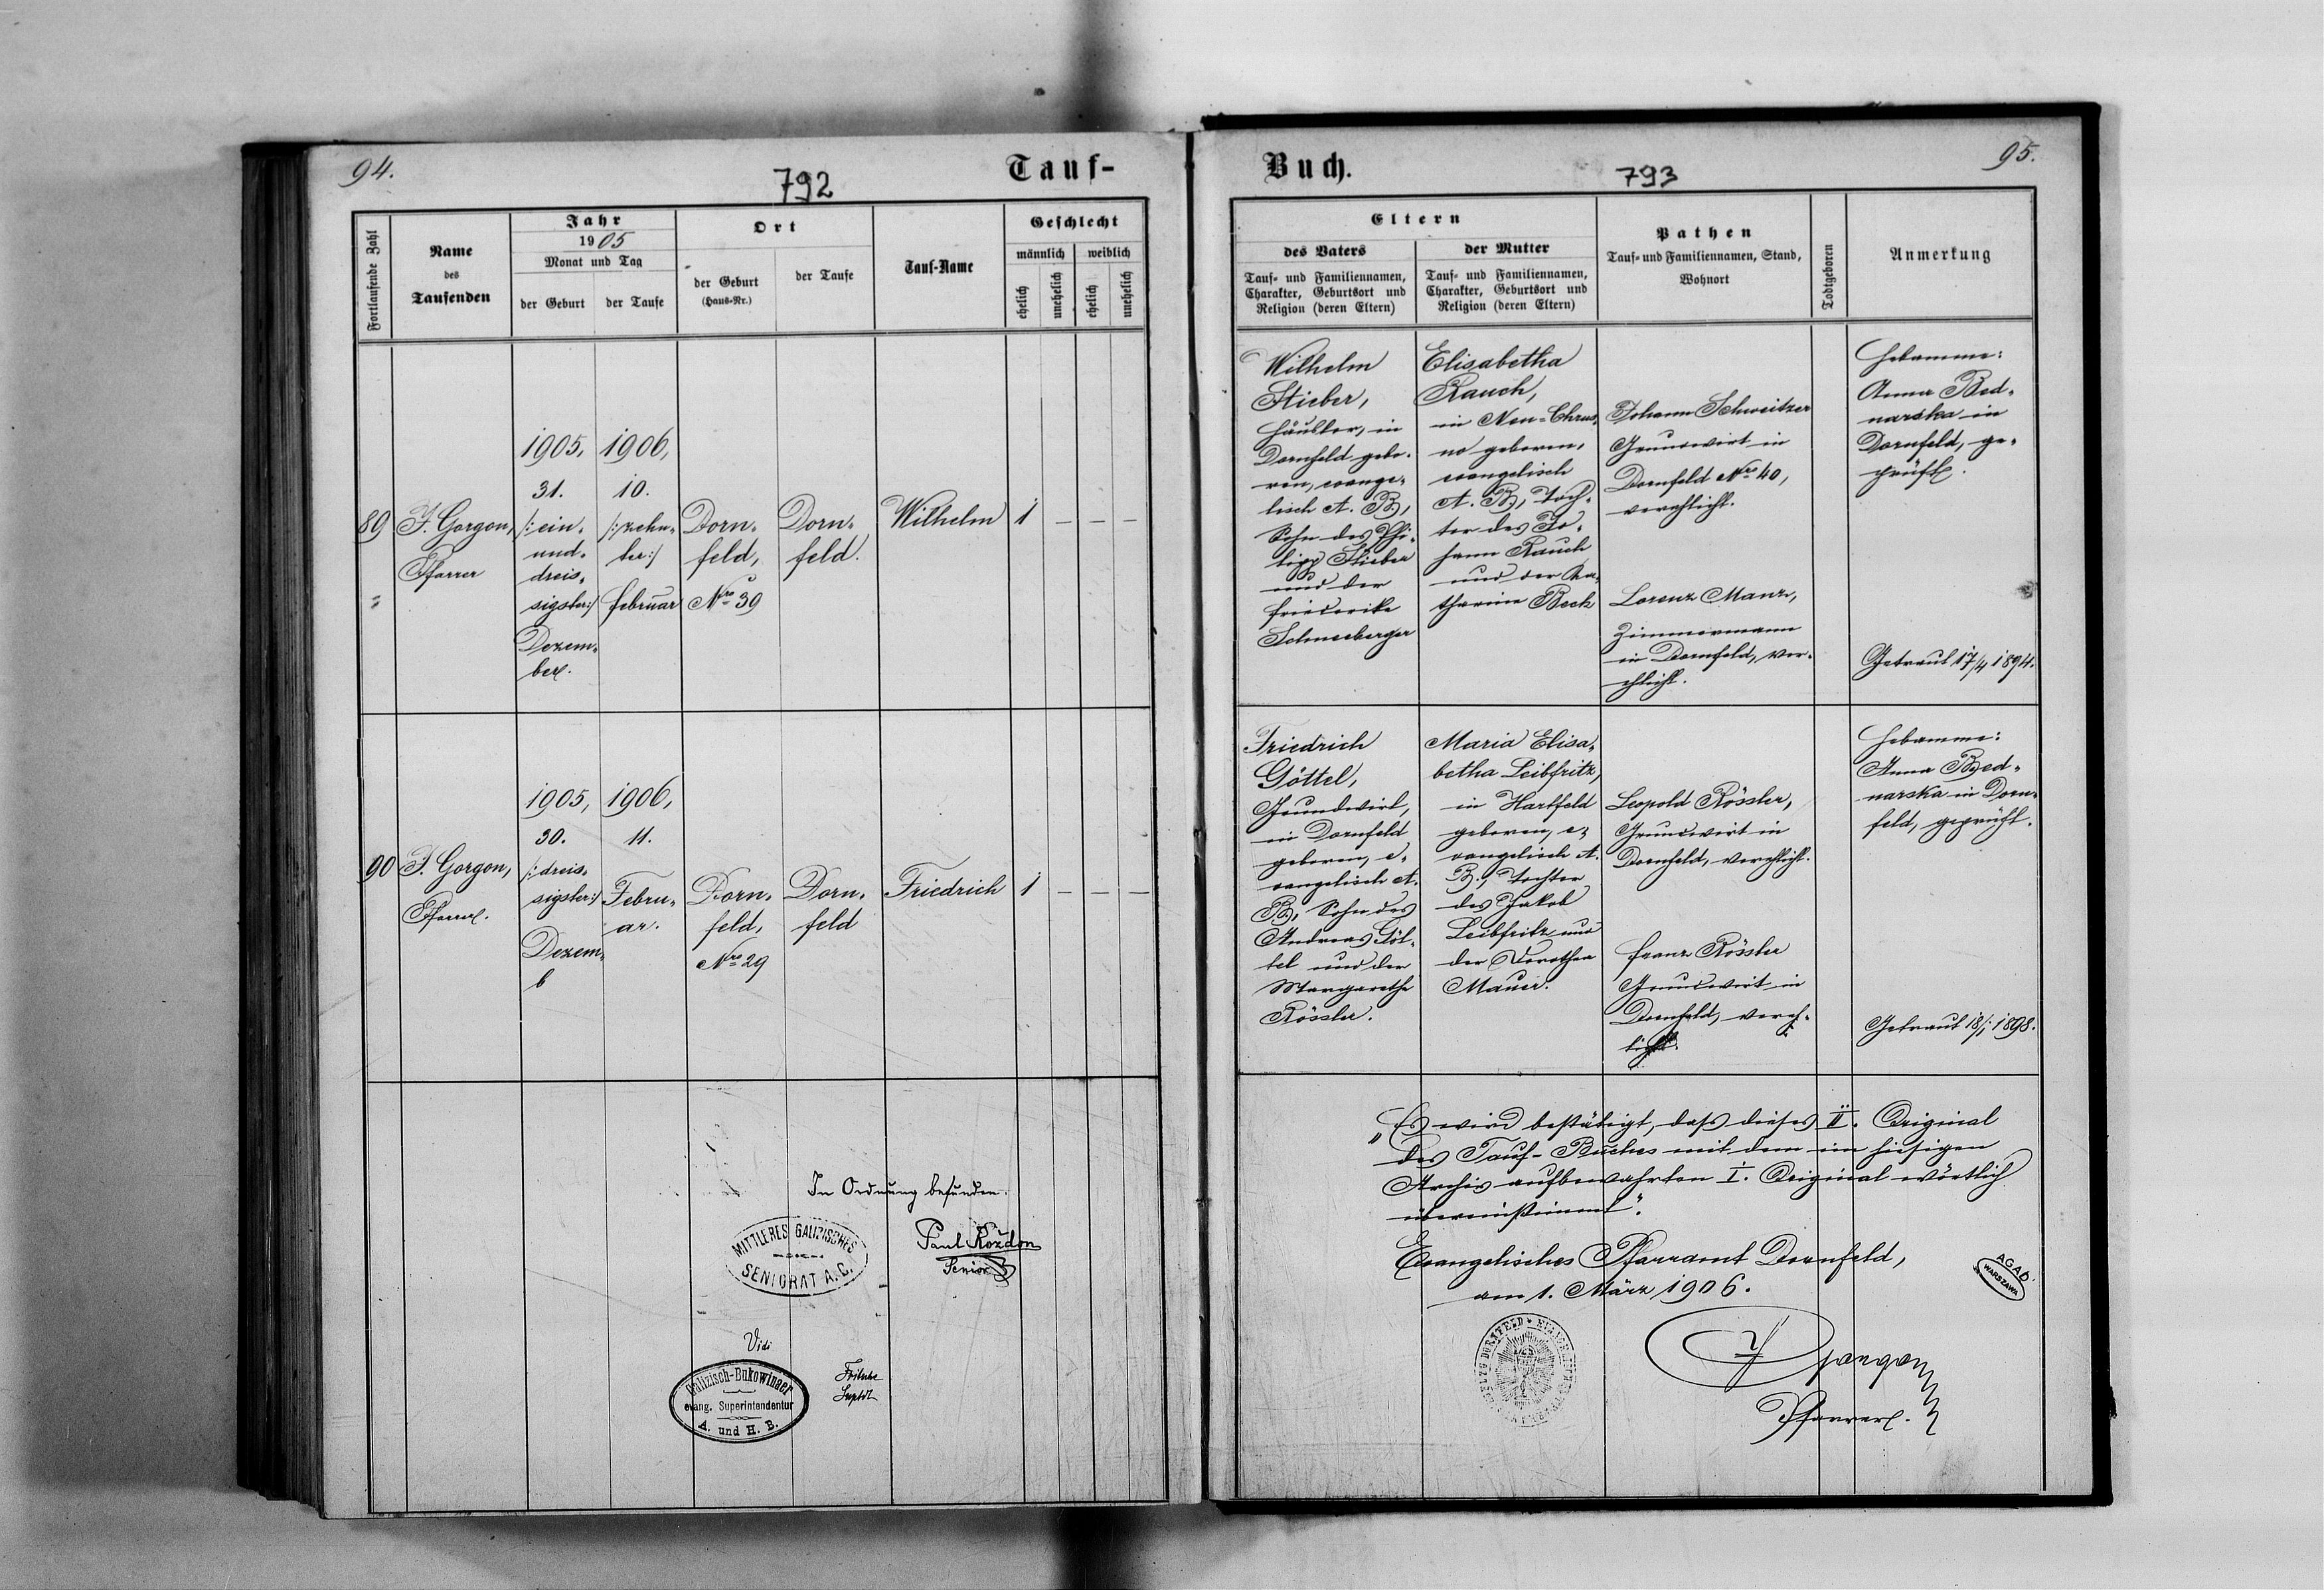 94.
792
Tauf-
Fortlaufende Zahl
Name
des
Taufenden
Jahr
1905
Monat und Tag
der Geburt
der Taufe
Ort
der Geburt
(Haus-Nr.)
der Taufe
Tauf-Name
Geschlecht
männlich
weiblich
ehelich
unehelich
ehelich
unehelich
89
F. Gorgon,
Pfarrer
1905,
31.
/: ein-
und-
dreis-
sigster:/
Dezem-
ber.
1906,
10.
/: zehn-
ter:/
Februar
Dorn-
feld,
Nro 39
Dorn-
feld.
Wilhelm
1
–
–
–
90
F. Gorgon,
Pfarrer.
1905,
30.
/: dreis-
sigster:/
Dezem-
b
1906,
11.
Febru-
ar.
Dorn-
feld,
Nro 29
Dorn-
feld
Friedrich
1
–
–
–
In Ordnung befunden.
MITTLERES GALIZISCHES
SENIORAT A.C.
Paul Kozdon
Senior
Vidi
Galizisch-Bukowinaer
evang. Superintendentur
A. und H. B.
Fritsche
Suptdt
Buch.
793
95.
Eltern
des Vaters
Tauf- und Familiennamen,
Charakter, Geburtsort und
Religion (deren Eltern)
der Mutter
Tauf- und Familiennamen,
Charakter, Geburtsort und
Religion (deren Eltern)
Pathen
Tauf- und Familiennamen, Stand,
Wohnort
Todtgeboren
Anmerkung
Wilhelm
Stieber,
Häusler, in
Dornfeld gebo-
ren, evange-
lisch A. B.,
Sohn des Phi-
lipp Stieber
und der
Friederike
Schneeberger
Elisabetha
Rauch,
in Neu-Chrus-
no geboren,
evangelisch
A. B., Toch-
ter des Jo-
hann Rauch
und der Ka-
tharina Beck
Johann Schweitzer
Grundwirt in
Dornfeld Nro 40,
verehlicht.
Lorenz Manz,
Zimmermann
in Dornfeld, ver-
ehlicht.
Hebamme:
Anna Bed-
narska in
Dornfeld, ge-
prüft.
Getraut 17/4 1894.
Friedrich
Göttel,
Grundwirt,
in Dornfeld
geboren, e-
vangelisch A.
B., Sohn des
Andreas Göt-
tel und der
Margarethe
Rössler.
Maria Elisa-
betha Leibfritz,
in Hartfeld
geboren, e-
vangelisch A.
B., Tochter
des Jakob
Leibfritz und
der Dorothea
Mauer.
Leopold Rössler,
Grundwirt in
Dornfeld, verehlicht.
Franz Rössler
Grundwirt in
Dornfeld, vereh-
licht.
Hebamme:
Anna Bed-
narska in Dorn-
feld, geprüft.
Getraut 18/1 1898.
„Es wird bestätigt, daß dieses II. Original
des Tauf-Buches mit dem im hiesigen
Archiv aufbewahrten I. Original wörtlich
übereinstimmt."
Evangelisches Pfarramt Dornfeld,
am 1. März 1906.
AGAD
WARSZAWA
F Gorgon
Pfarrer.